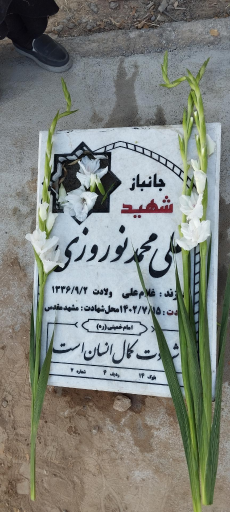 جانباز
شهید
علی محمد نوروزی
فرزند: غلامعلی ولادت ۱۳۳۶/۹/۲
۱۴۰۲/۷/۱۵ محل شهادت: مشهد مقدس
امام خمینی (ره)
شهادت کمال انسان است
بلوک ۱۴ ردیف ۴ شماره ۶